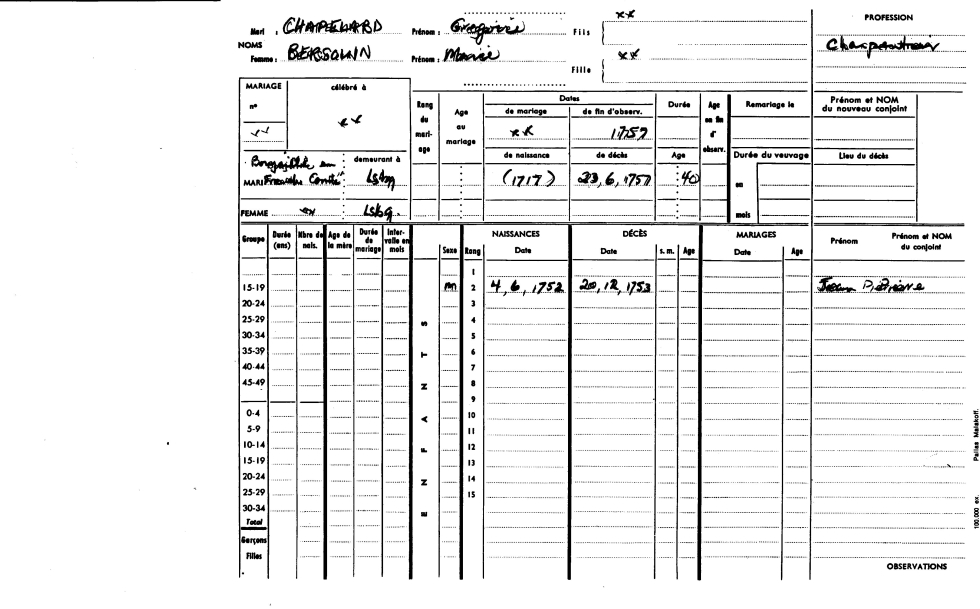 xx PROFESSION
Mari : CHAPELARD Prénom : Gregoire Fils
NOMS Charpentier
Femme : BERSQUIN Prénom : Marie xx
Fille
MARIAGE célébré à Rang du mari-age Age au mariage Dates Durée Age en fin d' observ. Remariage le Prénom et NOM du nouveau conjoint
n° de mariage de fin d'observ.
xx xx xx 1757
de naissance de décès Age Durée du veuvage Lieu du décès
en demeurant à
MARI Franche Comté Lsbg (1717) 23, 6, 1757 40 en
FEMME xx Lsbg. mois
Groupe Durée (ans) Nbre de nais. Age de la mère Durée de mariage Inter-valle en mois Sexe Rang NAISSANCES Date DÉCÈS Date s. m. Age MARIAGES Date Age Prénom Prénom et NOM du conjoint
1
15-19 m 2 4, 6, 1752 20, 12, 1753 Jean Pierre
20-24 3
25-29 S 4
30-34 5
35-39 T 6
40-44 7
45-49 N 8
9
0-4 A 10
5-9 11
10-14 F 12
15-19 13
20-24 N 14
25-29 15
30-34 E
Total
Garçons
Filles
OBSERVATIONS
100,000 ex. Pallas Malakoff.